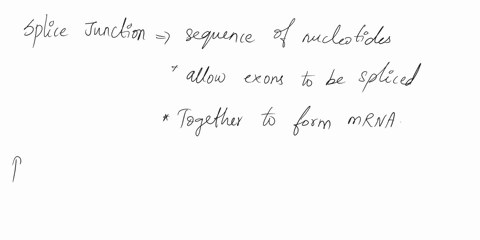 Splice Junction ⇒ sequence of nucleotides
* allow exons to be spliced
* Together to form mRNA.
↑